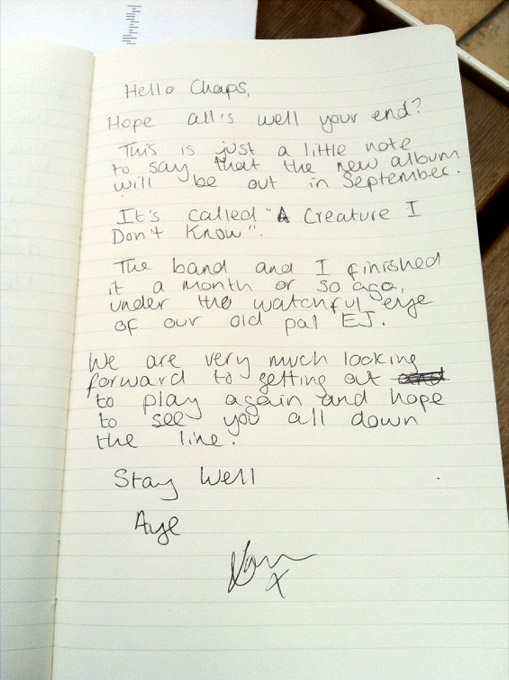 Hello Chaps,
Hope all's well your end?
This is just a little note
to say that the new album
will be out in September.
It's called "A Creature I
Don't Know".
The band and I finished
it a month or so ago,
under the watchful eye
of our old pal EJ.
We are very much looking
forward to getting out
to play again and hope
to see you all down
the line.
Stay Well
Aye
X